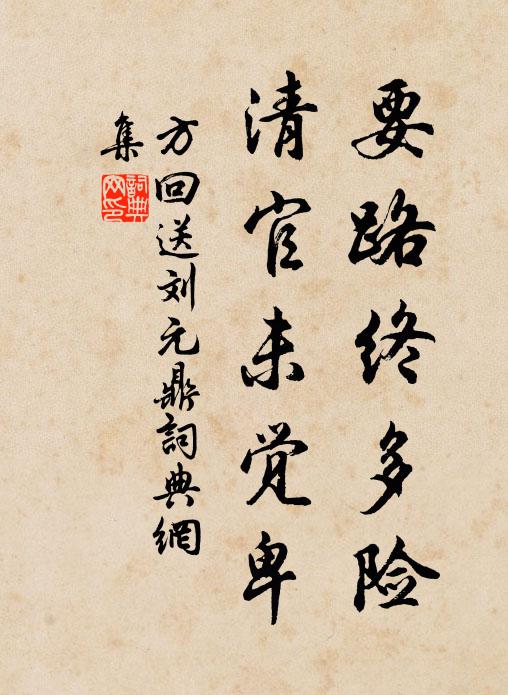 要路终多险
清官未觉卑
方回送刘元鼎詞典網
集
詞典网印